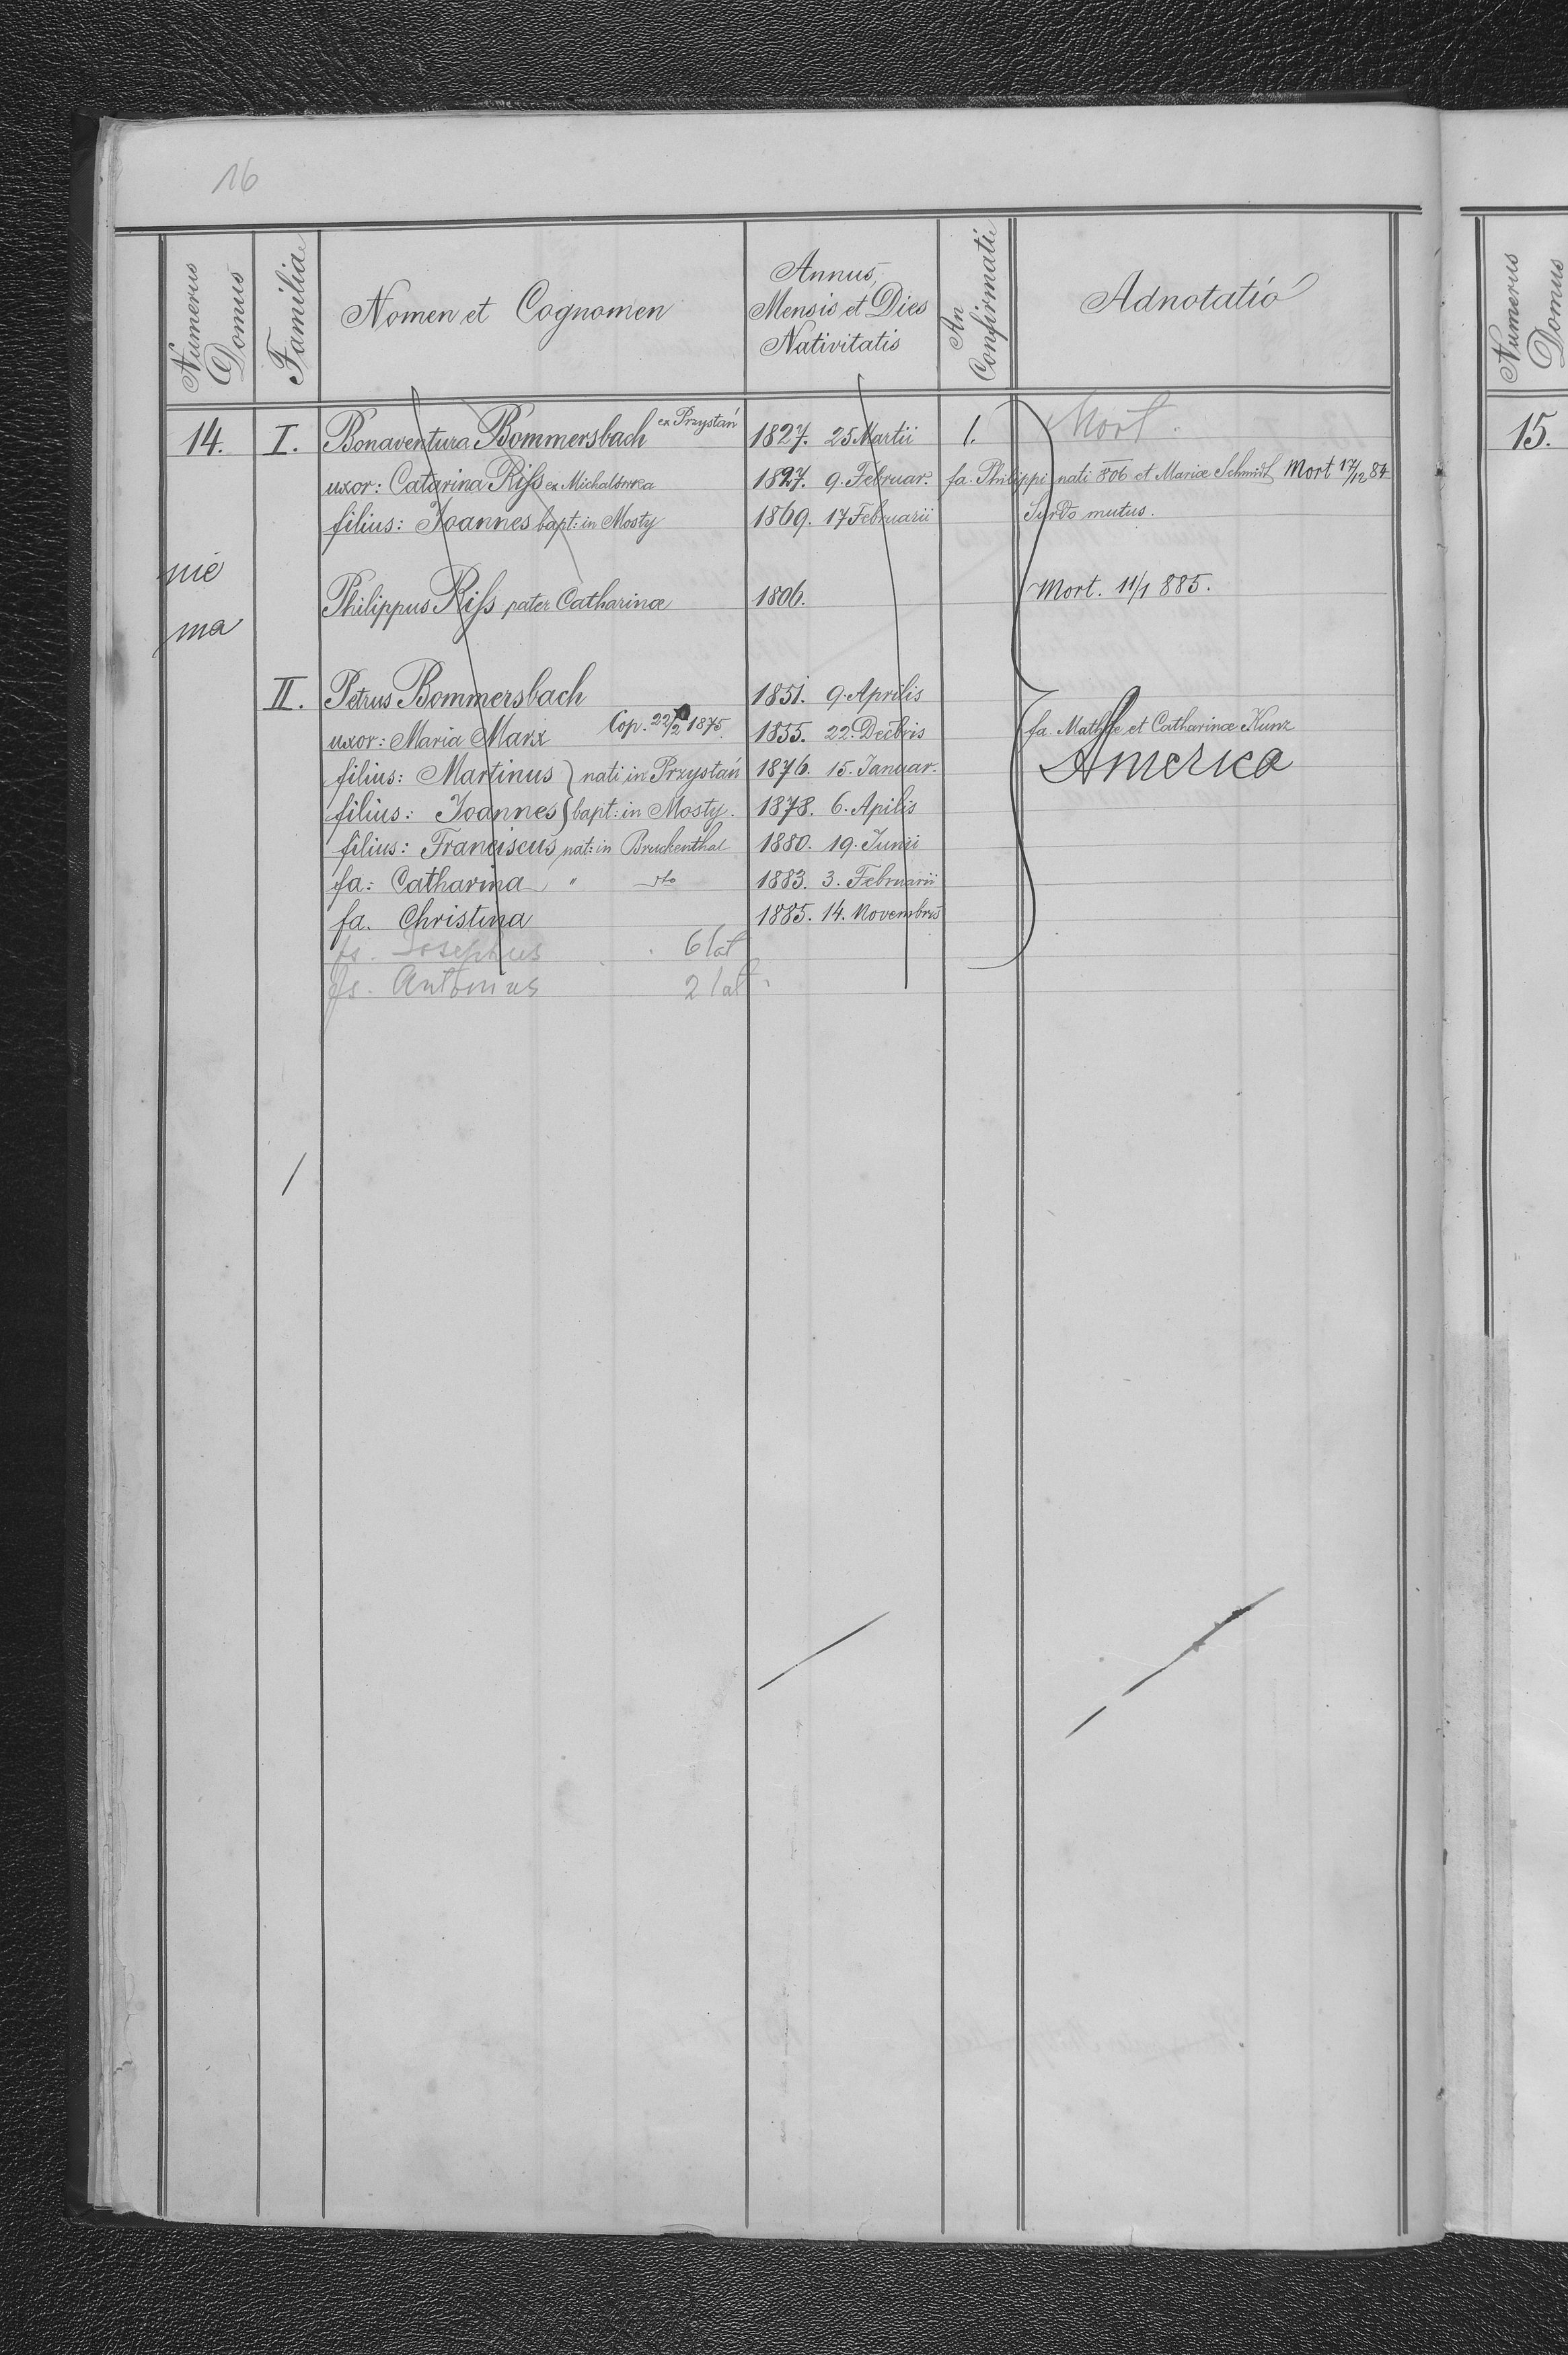 16
Numerus Domus | Familia | Nomen et Cognomen | Annus, Mensis et Dies Nativitatis | An Confirmati | Adnotatio
14. I. Bonaventura Bommersbach ex Przystań 1827. 25 Martii 1. Mort.
uxor: Catarina Riſs ex Michałówka 1827. 9. Februar. fa. Philippi nati 806 et Mariæ Schmidt Mort 17/12 84
filius: Joannes bapt: in Mosty 1869. 17 Februarii Surdo mutus.
nie
Philippus Riſs pater Catharinæ 1806. Mort. 11/1 885.
ma
II. Petrus Bommersbach 1851. 9. Aprilis
uxor: Maria Marx Cop. 22/2 1875. 1855. 22. Decbris fa. Mathiæ et Catharinæ Kunz
filius: Martinus } nati in Przystań 1876. 15. Januar. America
filius: Joannes } bapt: in Mosty. 1878. 6. Apilis
filius: Franciscus nat: in Bruckenthal 1880. 19. Junii
fa: Catharina " dto 1883. 3. Februarii
fa. Christina 1885. 14. Novembris
fs. Josephus 6 lat
fs. Antonius 2 lat
Numerus Domus
15.